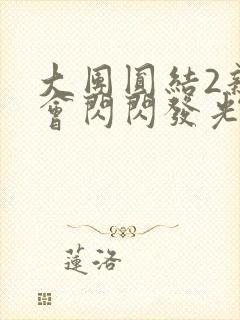 大團圓結2新
會閃閃發光
蓮洛